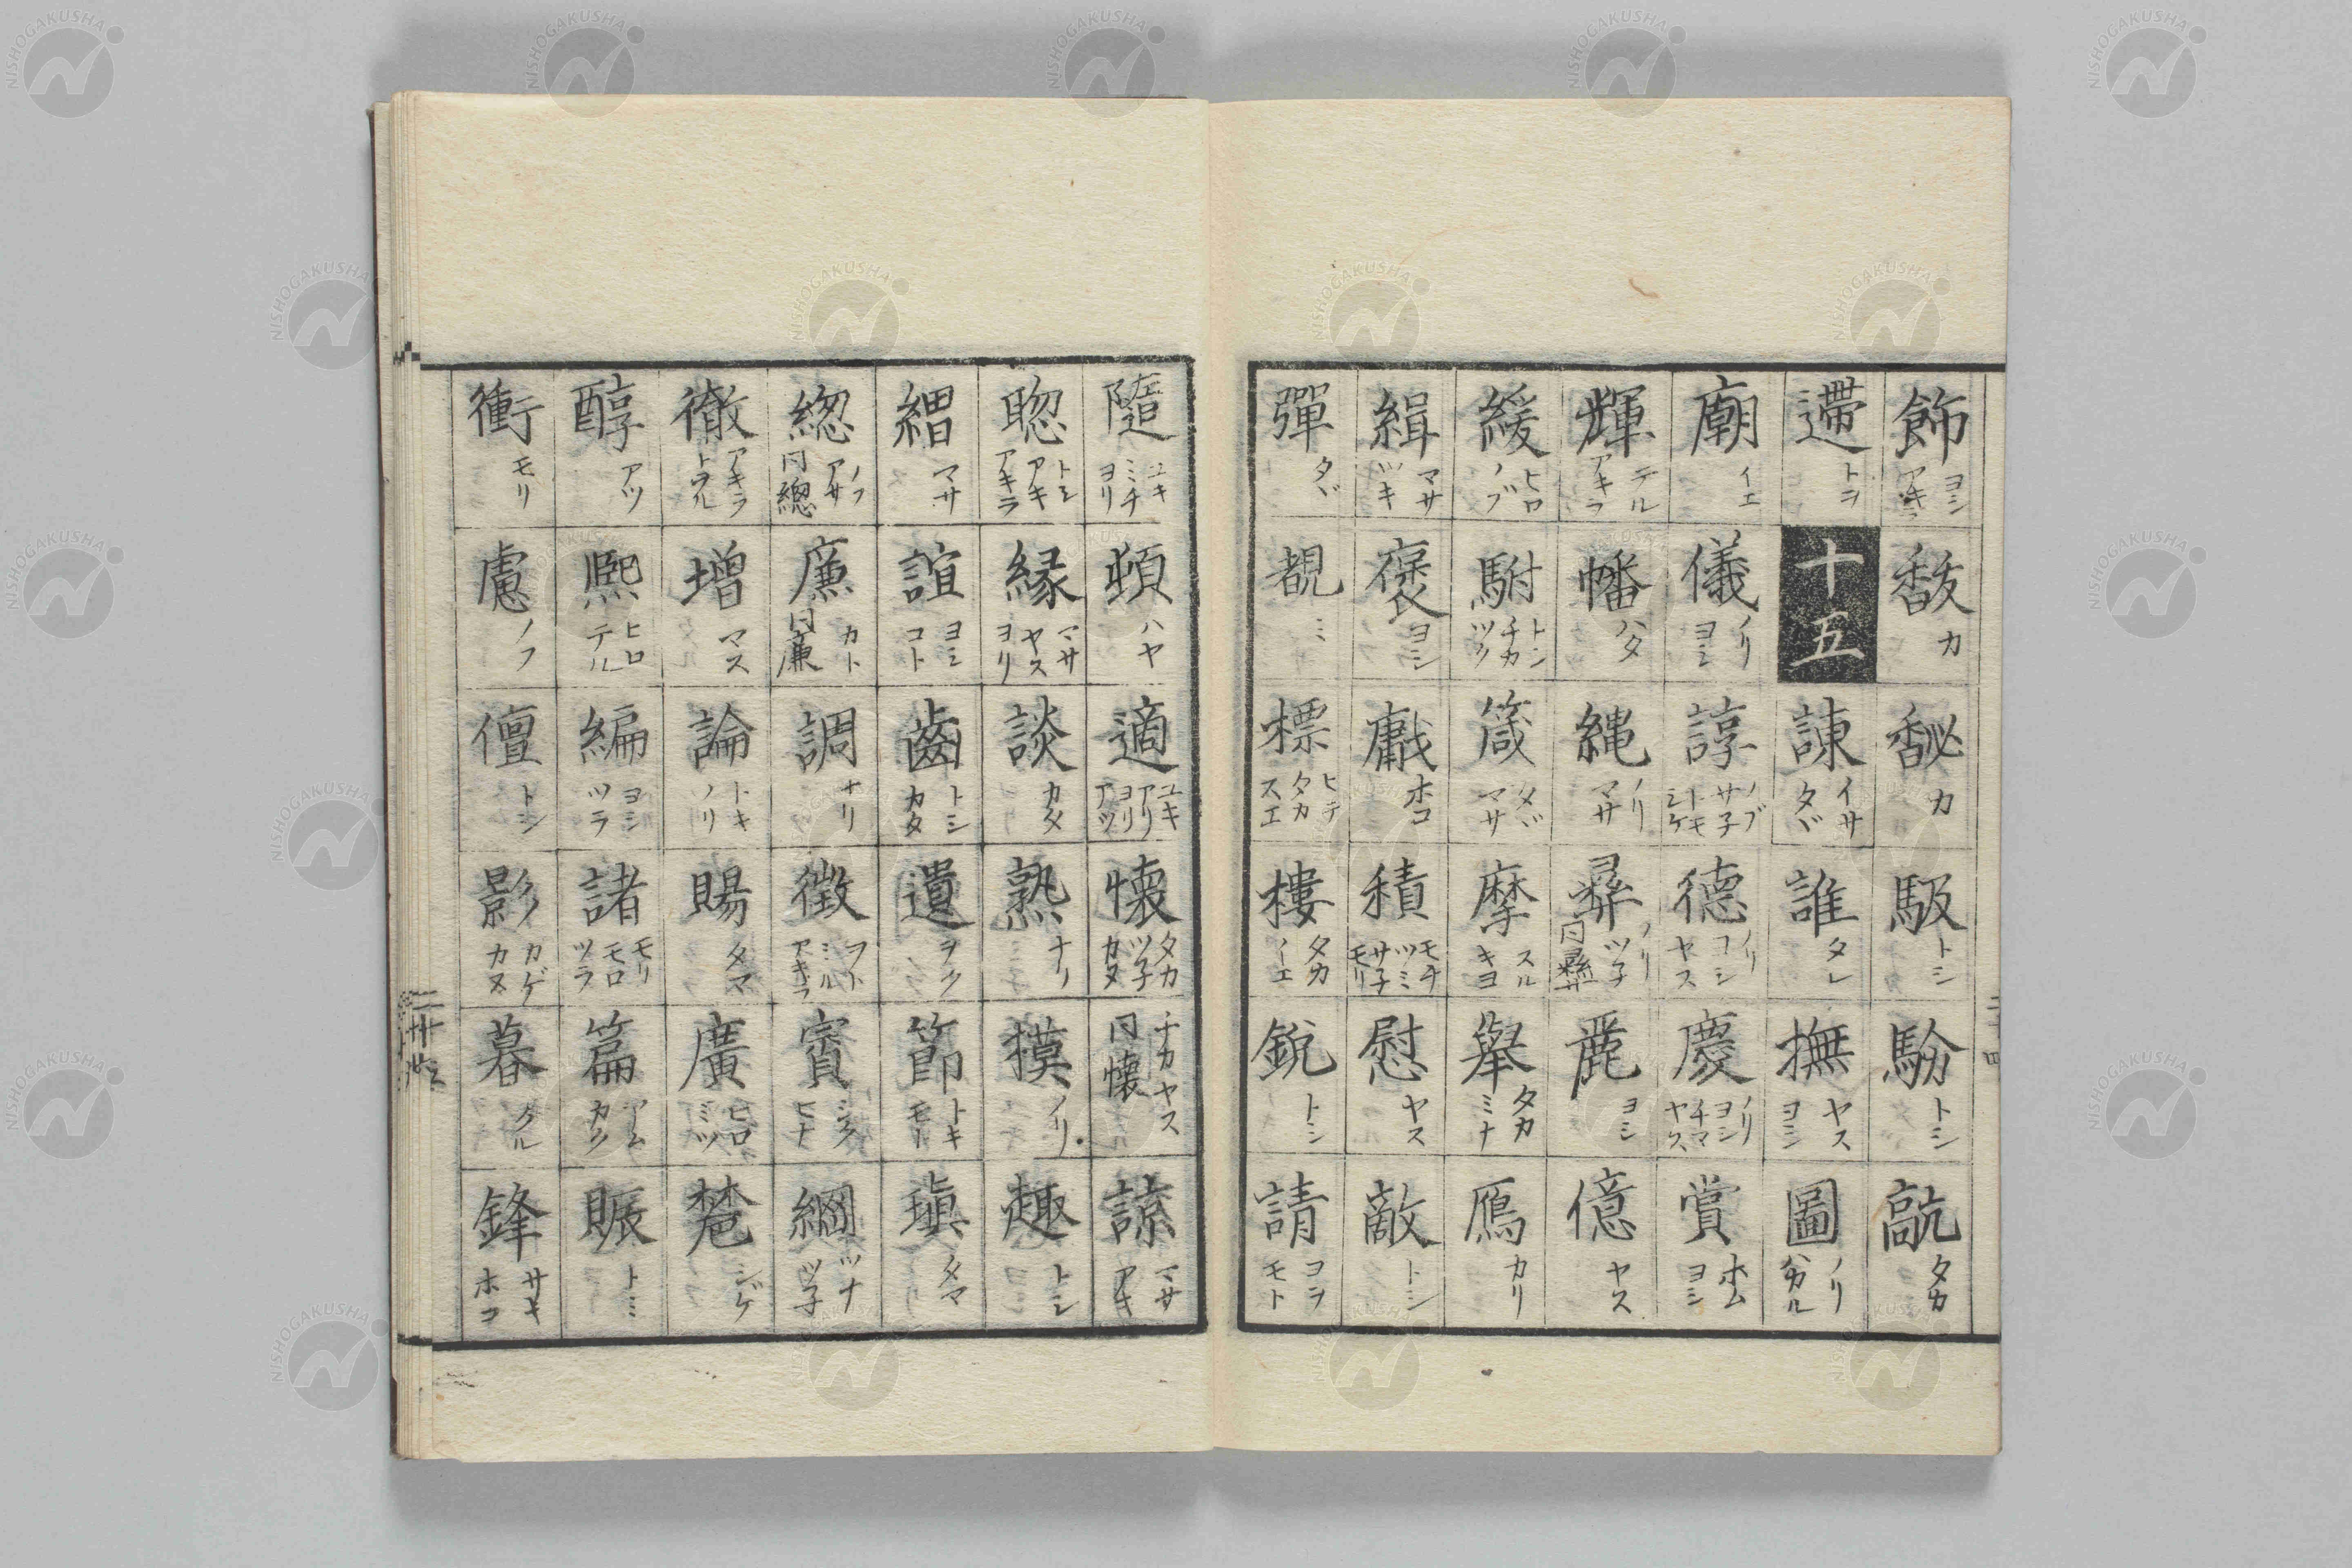 飾 ヨシ アキラ
馥 カ
馝 カ
馺 トシ
騐 トシ
髚 タカ
遰 トヲ
十五
諌 イサ タヾ
誰 タレ
撫 ヤス ヨシ
圖 ノリ ハカル
廟 イエ
儀 ノリ ヨシ
諄 ノブ サ子 トモ シケ
德 ノリ コシ ヤス
慶 ノリ ヨシ チマ ヤス
賞 ホム ヨシ
輝 テル アキラ
幡 ハタ
縄 ノリ マサ
彛 ノリ ツ子 同彝
麗 ヨシ
億 ヤス
緩 ヒロ ノブ
駙 トシ チカ ツク
箴 タヾ マサ
摩 スル キヨ
舉 タカ ミナ
鴈 カリ
緝 マサ ツキ
褒 ヨシ
戲 ホコ
積 モチ ツミ サ子 モリ
慰 ヤス
敵 トシ
彈 タヾ
覩 ミ
標 ヒテ タカ スエ
樓 タカ イエ
鋭 トシ
請 ヨヲ モト
隨 ユキ ミチ ヨリ
頻 ハヤ
適 ユキ アリ ヨリ アツ
懐 タカ ツ子 カヌ
チカ ヤス 同懷
諒 マサ アキ
聰 トシ アキ アキラ
縁 マサ ヤス ヨリ
談 カタ
熟 ナリ
摸 ノリ
趣 トシ
緝 マサ
誼 ヨシ コト
齒 トシ カタ
遺 ヲク
節 トキ モト
瑱 タマ
緫 ノフ アサ 同總
廉 カト 同廉
調 ナリ
徴 フト ミル アキラ
賓 シク ヒナ
綱 ツナ ツ子
徹 アキラ トヲル
增 マス
論 トキ ノリ
賜 タマ
廣 ヒロ ミツ
麓 シゲ
醇 アツ
熙 ヒロ テル
編 ヨシ ツラ
諸 モリ モロ ツラ
篇 アム カク
賑 トミ
衝 モリ
慮 ノフ
儃 トシ
影 カゲ カヌ
暮 クル
鋒 サキ ホコ